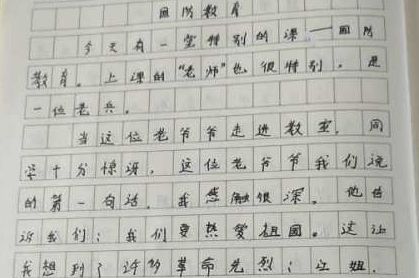 国防教育
今天有一堂特别的课——国防
教育。上课的“老师”也很特别。是
一位老兵。
当这位老爷爷走进教室，同
学十分惊讶，这位老爷爷我们说
的第一句话，我感触很深。他告
诉我们：我们要热爱祖国。这让
我想到了许多革命先烈：江姐